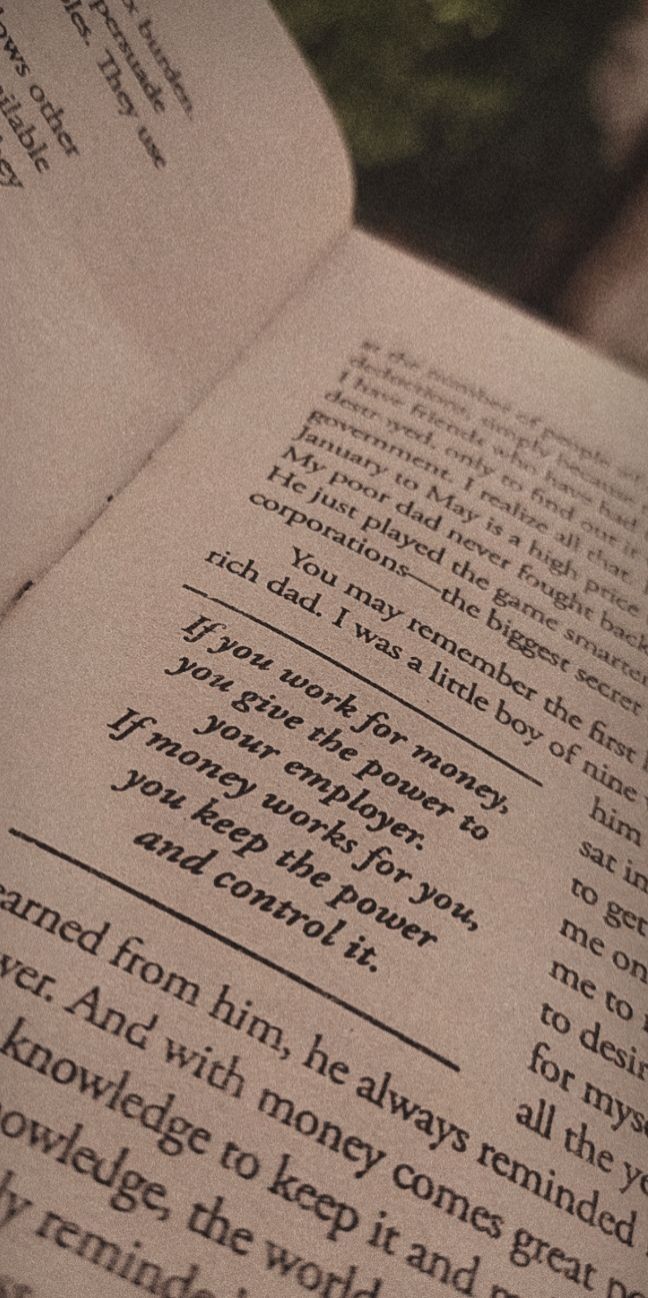 x burden.
persuade
les. They use
ows other
ailable
hey
the number of people
deductions, simply because
I have friends who have had
destr yed, only to find out it
government. I realize all that.
January to May is a high price
My poor dad never fought back
He just played the game smarter
corporations—the biggest secret
You may remember the first
rich dad. I was a little boy of nine
If you work for money,
you give the power to
your employer.
If money works for you,
you keep the power
and control it.
him
sat in
to get
me on
me to
to desir
for myse
all the ye
earned from him, he always reminded
wer. And with money comes great po
knowledge to keep it and
nowledge, the world
ly reminde